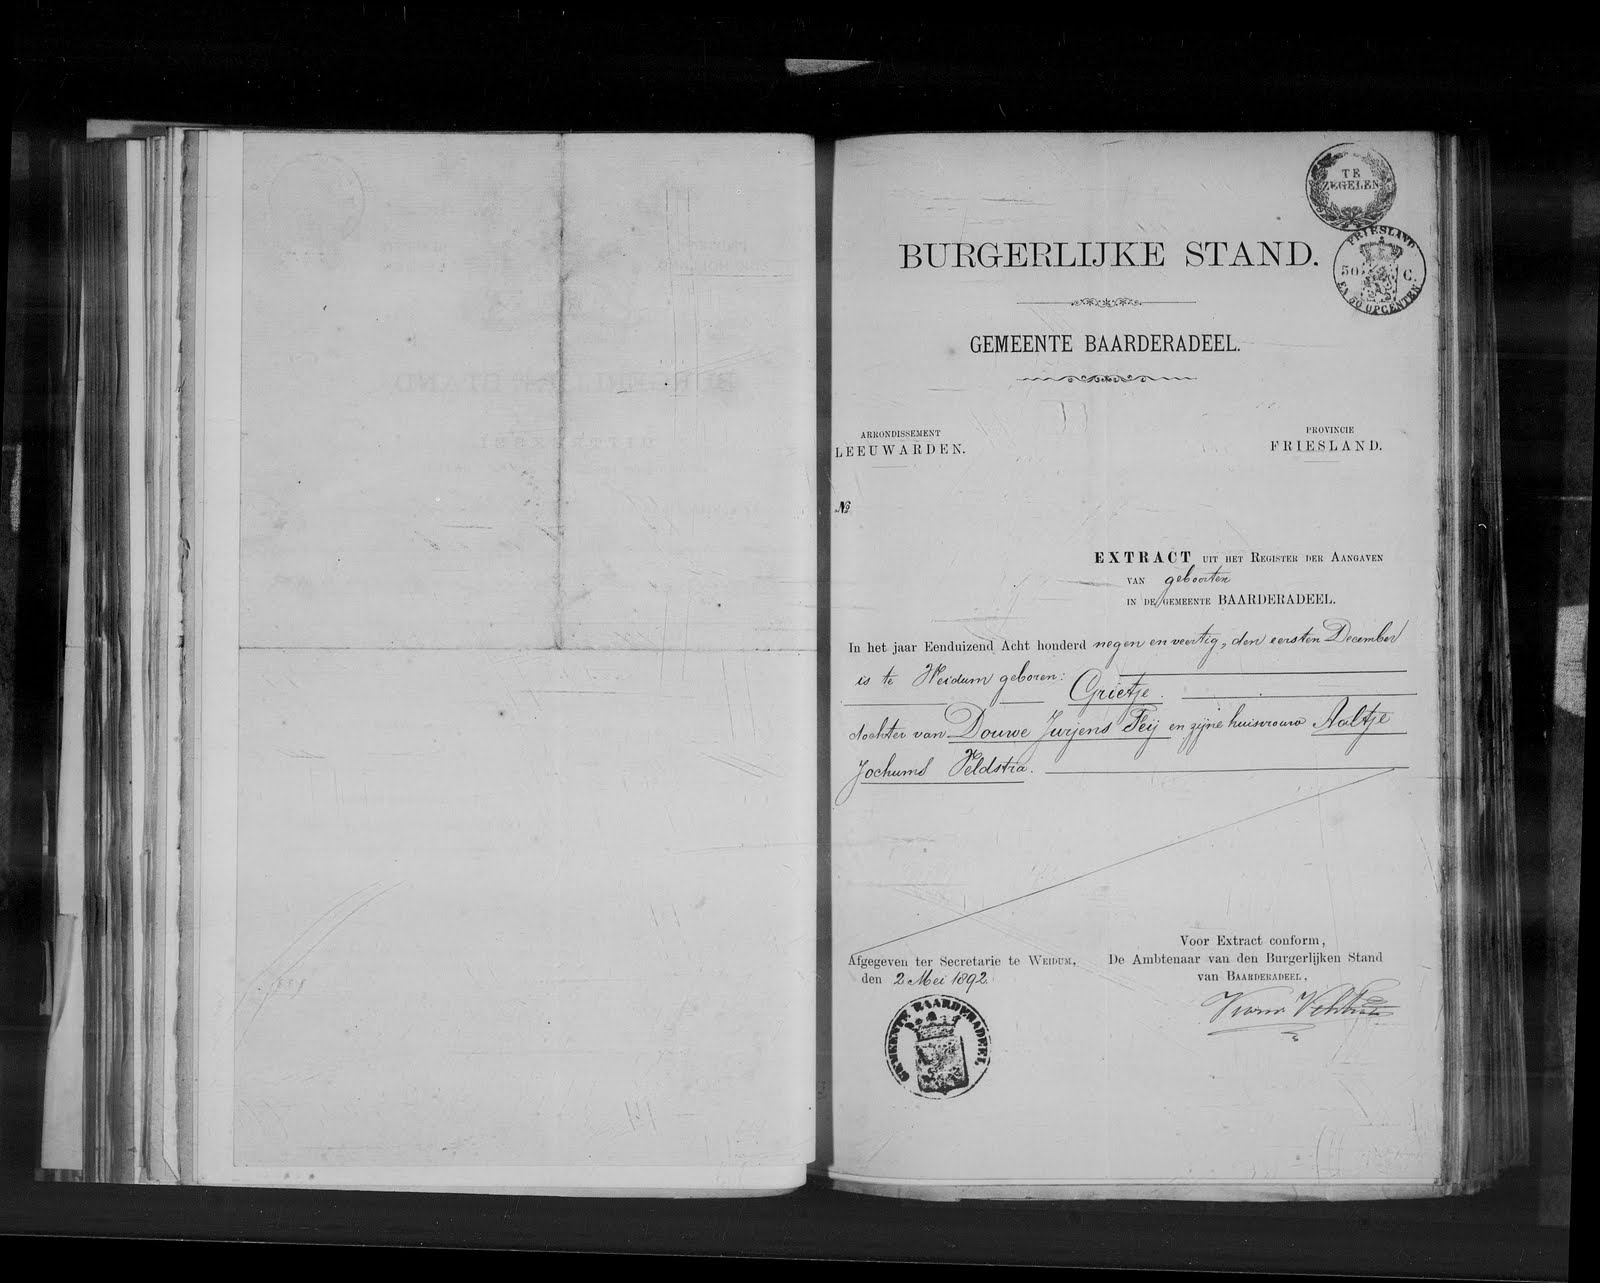 TE
ZEGELEN
FRIESLAND
50 C.
EN 50 OPCENTEN
BURGERLIJKE STAND.
GEMEENTE BAARDERADEEL.
ARRONDISSEMENT
LEEUWARDEN.
PROVINCIE
FRIESLAND.
№
EXTRACT UIT HET REGISTER DER AANGAVEN
VAN geboorten
IN DE GEMEENTE BAARDERADEEL.
In het jaar Eenduizend Acht honderd negen en veertig, den eersten December
is te Weidum geboren:
Grietje.
dochter van Douwe Jurjens Feij en zijne huisvrouw Aaltje
Jochums Veldstra.
Voor Extract conform,
Afgegeven ter Secretarie te WEIDUM,
den 2 Mei 1892.
De Ambtenaar van den Burgerlijken Stand
van BAARDERADEEL,
GEMEENTE BAARDERADEEL.